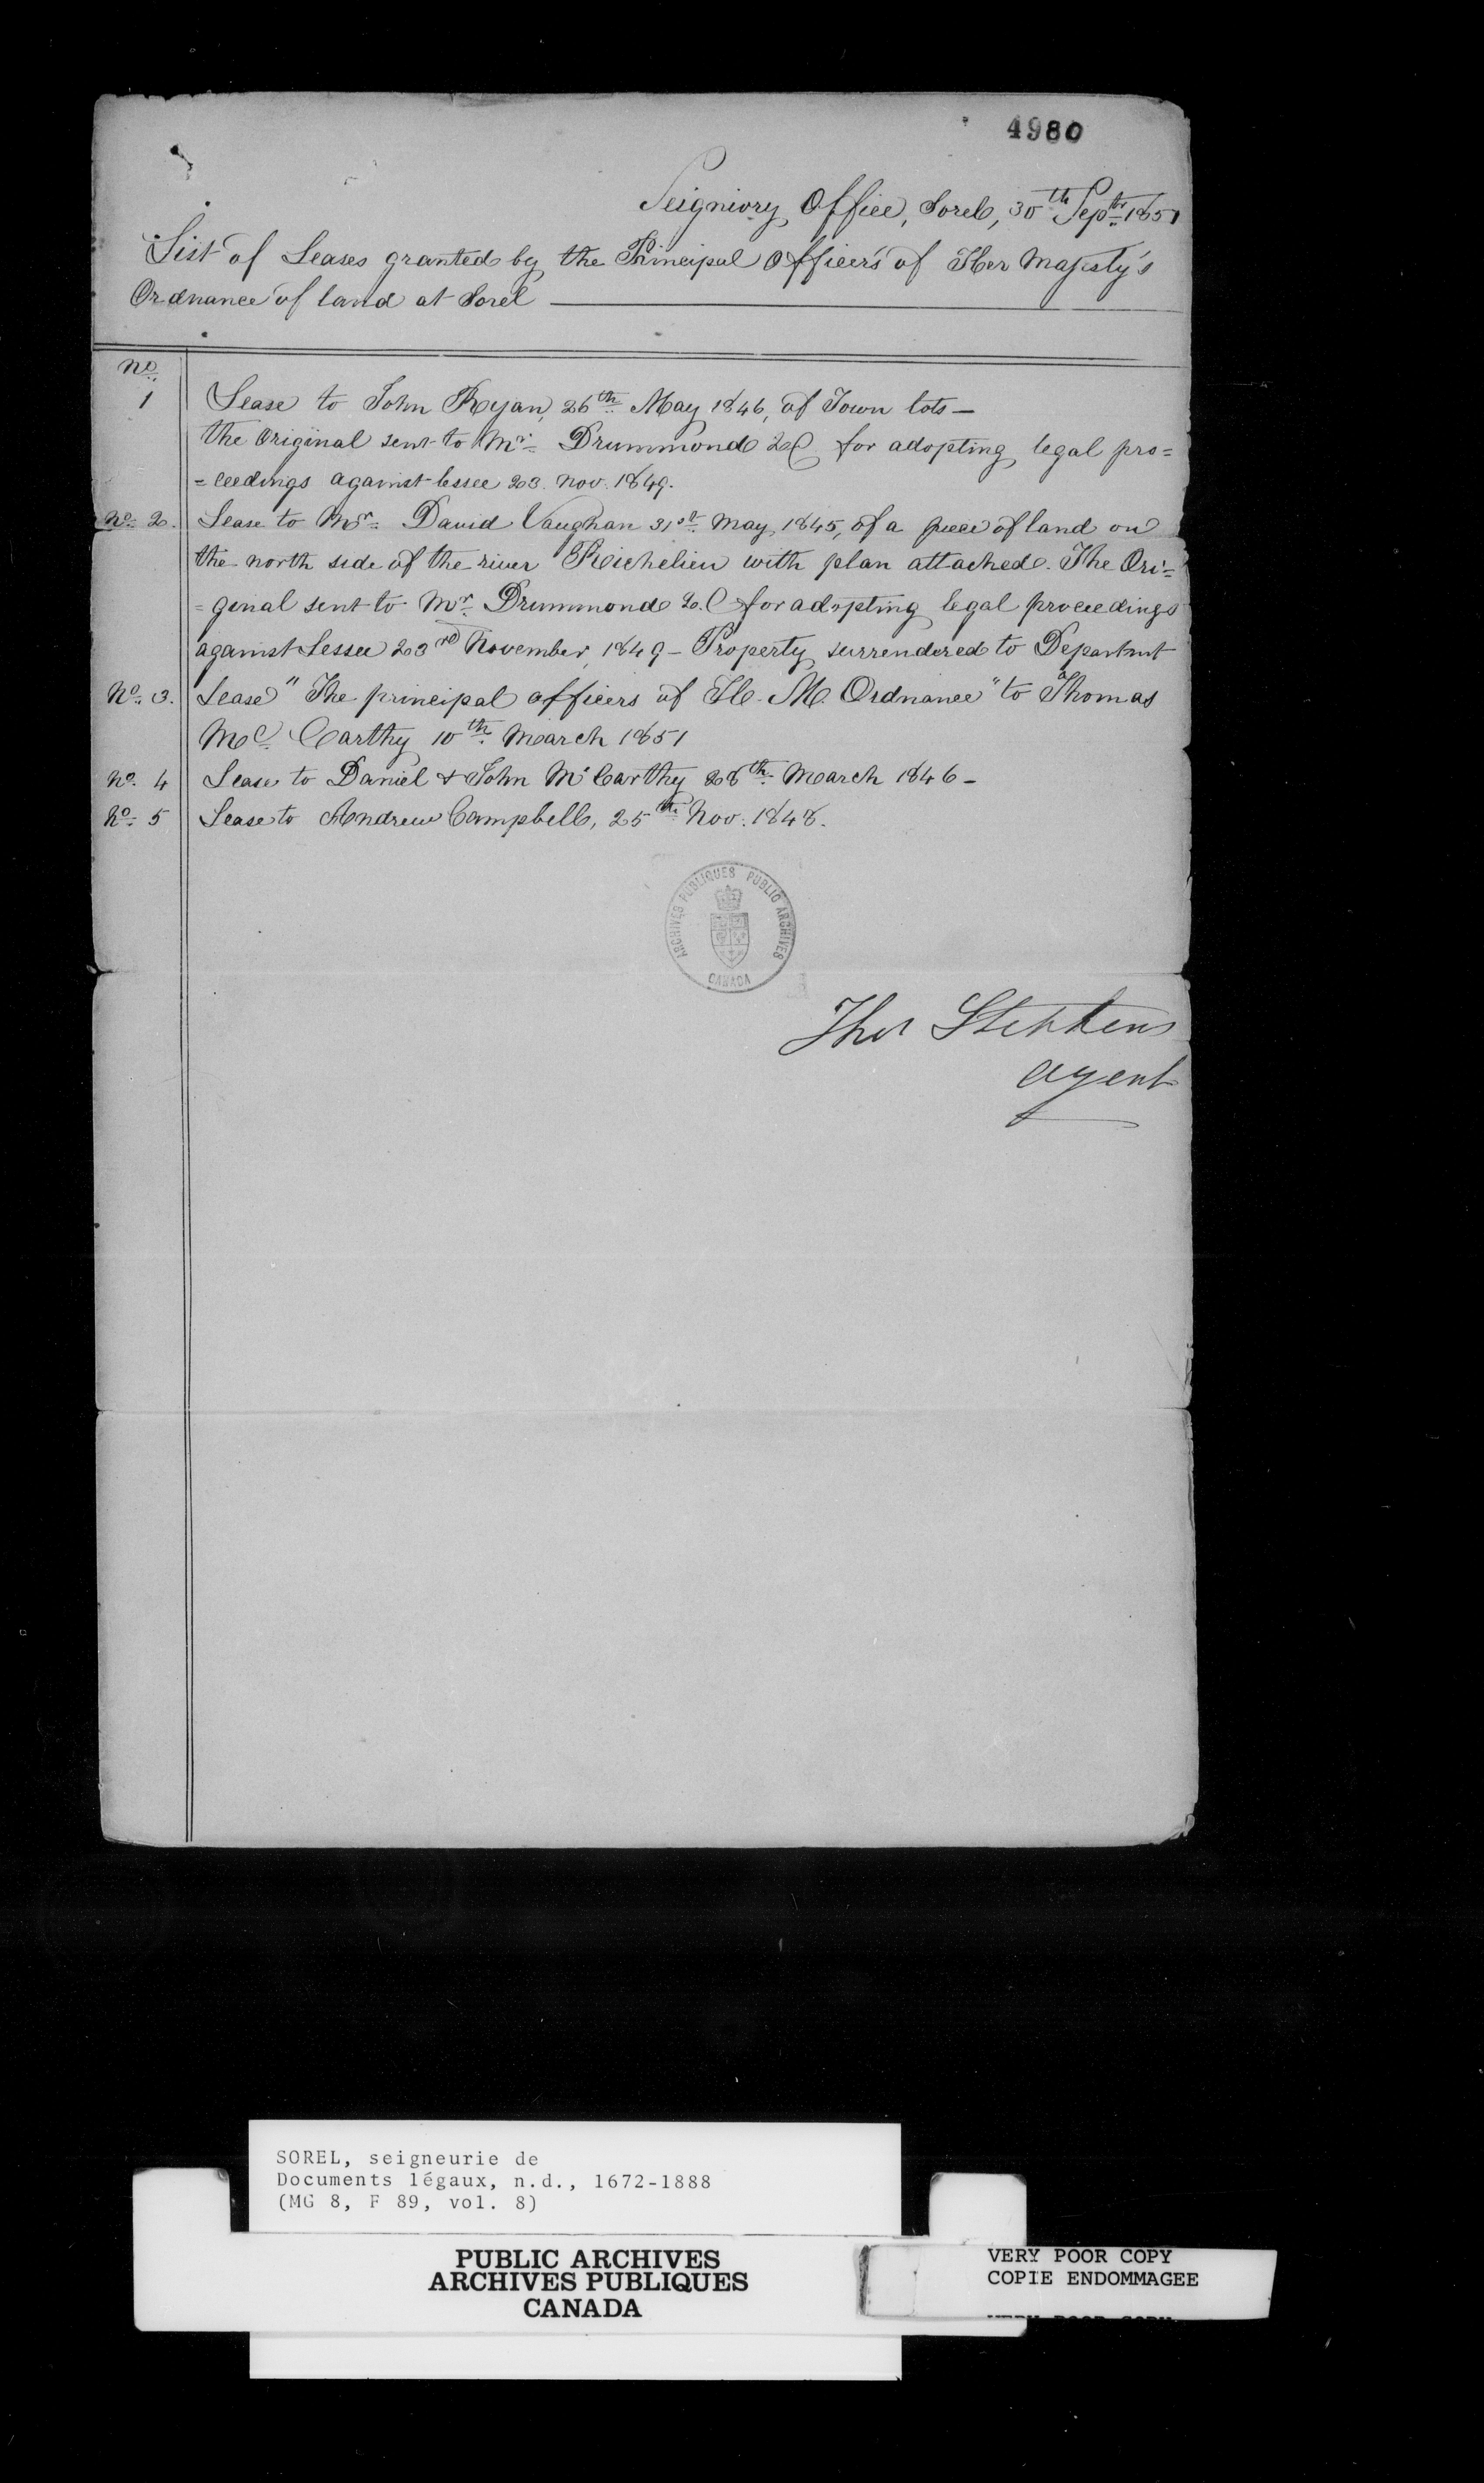 4980
Seigniory Office, Sorel, 30th Septr. 1851
List of Leases granted by the Principal Officers of Her Majesty's
Ordnance of land at Sorel
No.
1 Lease to John Ryan, 26th May 1846, of Town lots —
the Original sent to Mr. Drummond Q.C for adopting legal pro=
=ceedings against lessee 23. Nov. 1849.
No. 2. Lease to Mr. David Vaughan 31st May, 1845, of a piece of land on
the north side of the river Richelieu with plan attached. The Ori=
=ginal sent to Mr. Drummond Q.C for adopting legal proceedings
against Lessee 23rd November, 1849 - Property surrendered to Department
No. 3. Lease "The principal officers of H. M. Ordnance" to Thomas
Mc. Carthy 10th March 1851
No. 4 Lease to Daniel & John McCarthy 28th March 1846 -
No. 5 Lease to Andrew Campbell, 25th Nov. 1848.
ARCHIVES PUBLIQUES PUBLIC ARCHIVES
CANADA
Thos Stephens
agent
SOREL, seigneurie de
Documents légaux, n.d., 1672-1888
(MG 8, F 89, vol. 8)
PUBLIC ARCHIVES
ARCHIVES PUBLIQUES
CANADA
VERY POOR COPY
COPIE ENDOMMAGEE
VERY POOR COPY